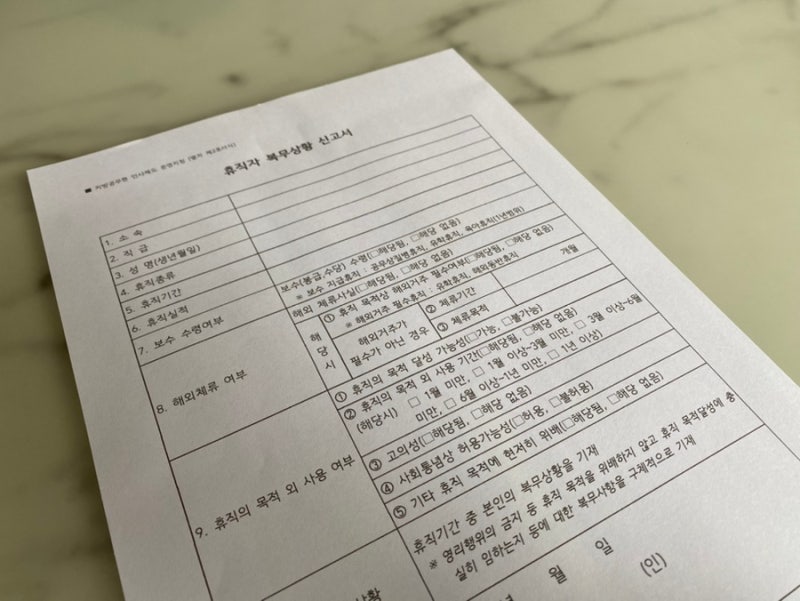 ■ 지방공무원 인사제도 운영지침 [별지 제2호서식]
휴직자 복무상황 신고서
1. 소 속
2. 직 급
3. 성 명(생년월일)
4. 휴직종류
5. 휴직기간
6. 휴직실적
7. 보수 수령여부
보수(봉급,수당) 수령(□해당됨, □해당 없음)
※ 보수 지급휴직 : 공무상질병휴직, 유학휴직, 육아휴직(1년범위)
8. 해외체류 여부
해외 체류사실(□해당됨, □해당 없음)
해당시
① 휴직 목적상 해외거주 필수여부(□해당됨, □해당 없음)
※ 해외거주 필수휴직 : 유학휴직, 해외동반휴직
해외거주가
필수가 아닌 경우
② 체류기간
개월
③ 체류목적
9. 휴직의 목적 외 사용 여부
① 휴직의 목적 달성 가능성(□가능, □불가능)
② 휴직의 목적 외 사용 기간(□해당됨, □해당 없음)
(해당시) □ 1월 미만, □ 1월 이상~3월 미만, □ 3월 이상~6월
미만, □ 6월 이상~1년 미만, □ 1년 이상)
③ 고의성(□해당됨, □해당 없음)
④ 사회통념상 허용가능성(□허용, □불허용)
⑤ 기타 휴직 목적에 현저히 위배(□해당됨, □해당 없음)
휴직기간 중 본인의 복무상황을 기재
※ 영리행위의 금지 등 휴직 목적을 위배하지 않고 휴직 목적달성에 충
실히 임하는지 등에 대한 복무사항을 구체적으로 기재
상황
년 월 일
(인)